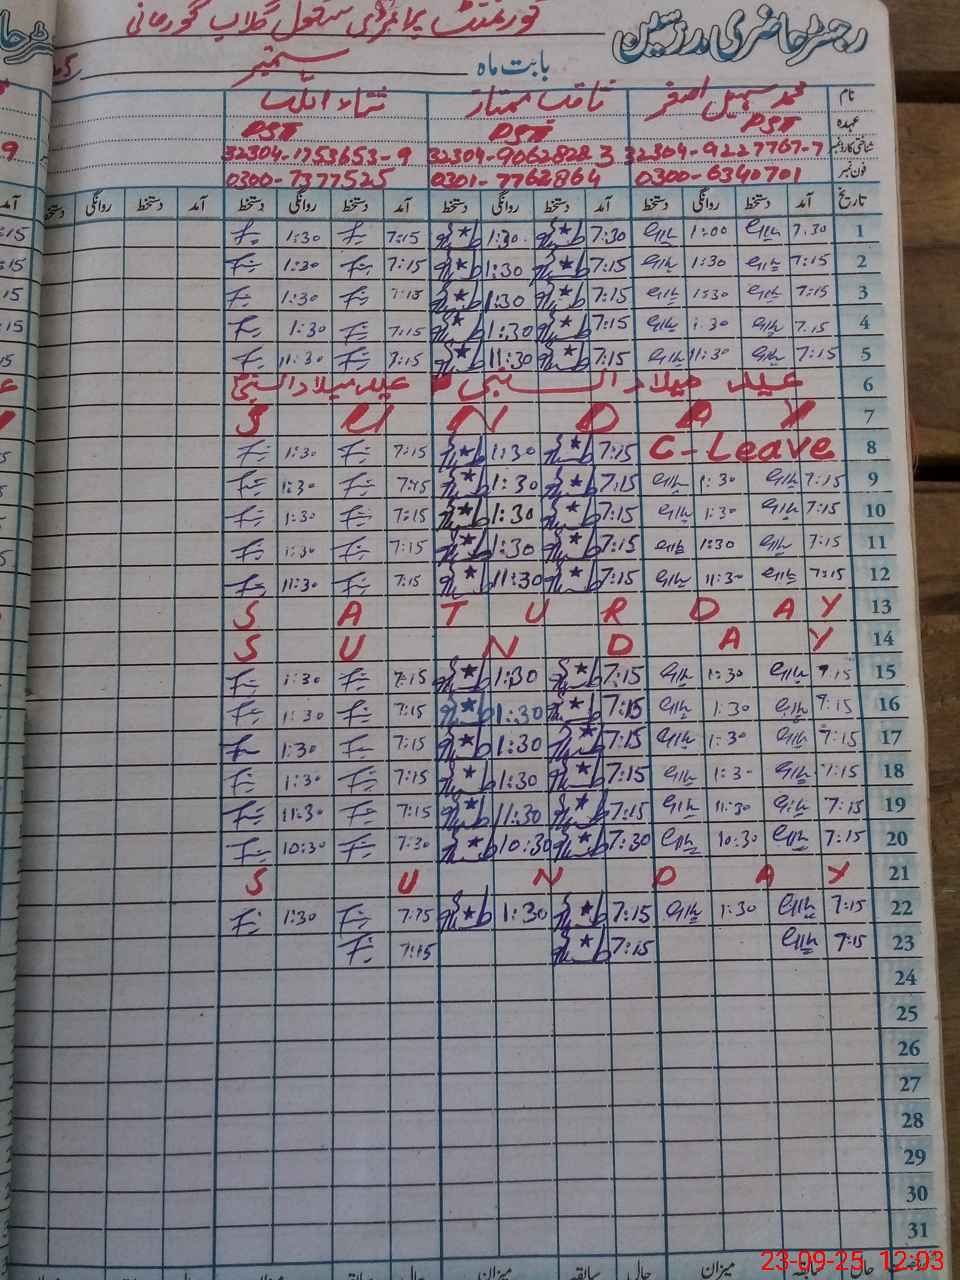 رجسٹر حاضری مدرسین
گورنمنٹ پرائمری سکول گلاب گورمانی
بابت ماہ ستمبر
نام محمد سہیل اصغر ثاقب ممتاز ثناء اللہ
عہدہ PST PST PST
شناختی کارڈ نمبر 32304-9227767-7 32304-9062828 3 32304-1753653-9
فون نمبر 0300-6340701 0301-7762864 0300-7377525
تاریخ آمد دستخط روانگی دستخط آمد دستخط روانگی دستخط آمد دستخط روانگی دستخط آمد دستخط روانگی دستخط
1 7:30 1:00 7:30 1:30 7:15 1:30
2 7:15 1:30 7:15 1:30 7:15 1:30
3 7:15 1:30 7:15 1:30 7:15 1:30
4 7:15 1:30 7:15 1:30 7:15 1:30
5 7:15 11:30 7:15 11:30 7:15 11:30
6 عید میلاد النبی عید میلاد النبی
7 S U N D A Y
8 C-Leave 7:15 1:30 7:15 1:30
9 7:15 1:30 7:15 1:30 7:15 1:30
10 7:15 1:30 7:15 1:30 7:15 1:30
11 7:15 1:30 7:15 1:30 7:15 1:30
12 7:15 11:30 7:15 11:30 7:15 11:30
13 S A T U R D A Y
14 S U N D A Y
15 7:15 1:30 7:15 1:30 7:15 1:30
16 7:15 1:30 7:15 1:30 7:15 1:30
17 7:15 1:30 7:15 1:30 7:15 1:30
18 7:15 1:30 7:15 1:30 7:15 1:30
19 7:15 11:30 7:15 11:30 7:15 11:30
20 7:15 10:30 7:30 10:30 7:30 10:30
21 S U N D A Y
22 7:15 1:30 7:15 1:30 7:15 1:30
23 7:15 7:15 7:15
24
25
26
27
28
29
30
31
حال سابقہ میزان حال سابقہ میزان حال سابقہ میزان
23-09-25 12:03